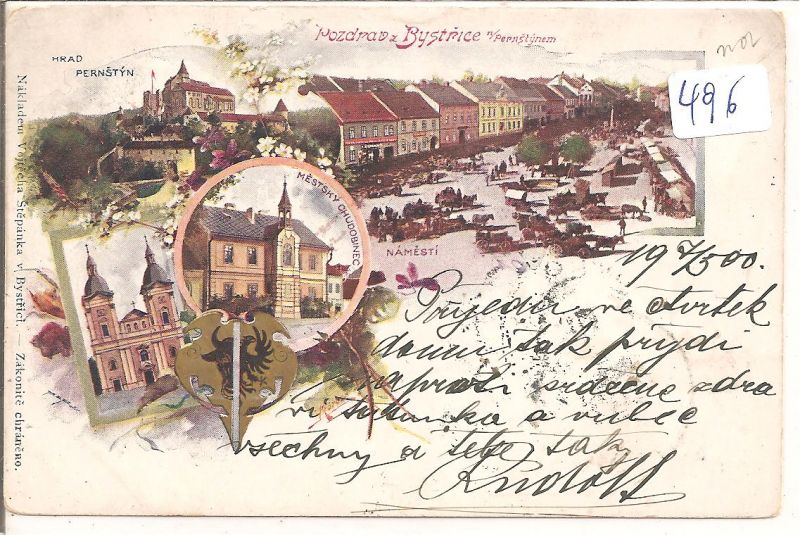 Pozdrav z Bystřice n/Pernštýnem
HRAD
PERNŠTÝN
496
MĚSTSKÝ CHUDOBINEC
NÁMĚSTÍ
Nákladem Vojtěcha Štěpánka v Bystřici. — Zákonitě chráněno.
19/5 00.
Přijedu ve čtvrtek
domu tak přijdi
naproti srdečně zdra
ví a vubec
všechny a tebe tak
Rudolf